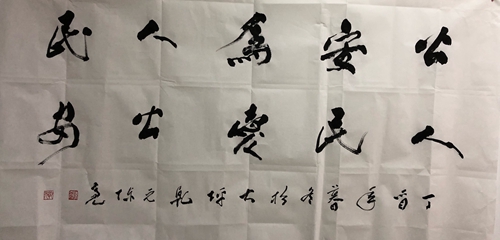 公安為人民
人民愛公安
丁酉年暮冬於大坪元陈亮